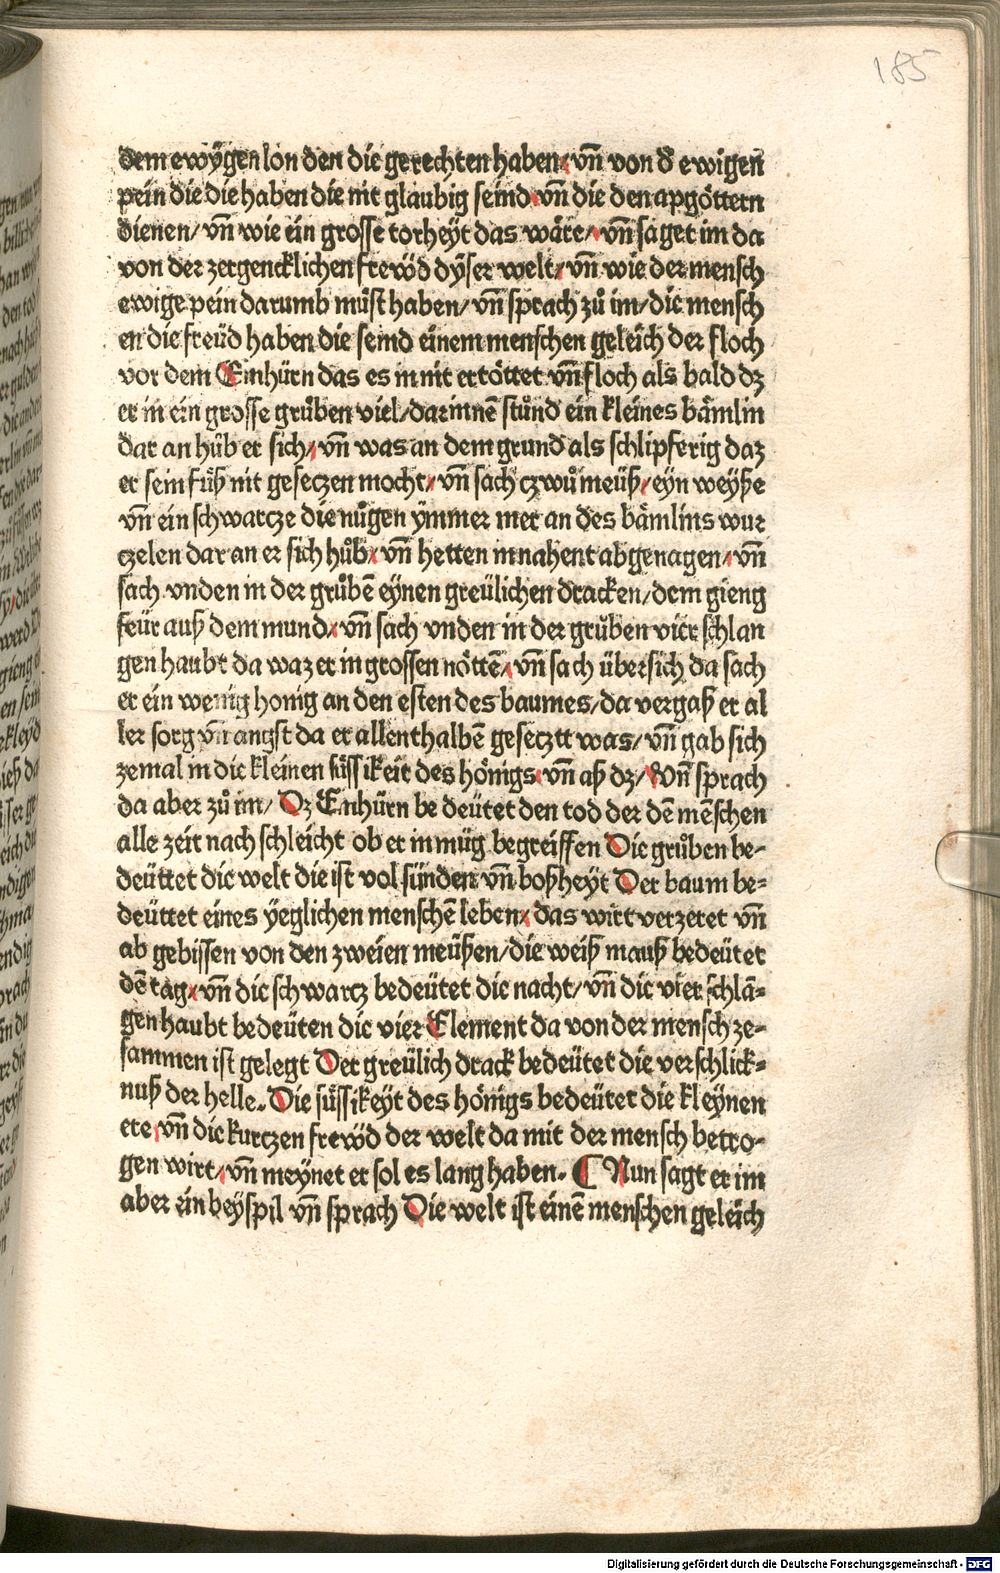 185
dem ewÿgen lon den die gerechten haben / vn̄ von d̄ ewigen
pein die die haben die nit glaubig seind / vn̄ die den apgöttern
dienen / vn̄ wie ein grosse torheÿt das wäre / vn̄ saget im da
von der zergencklichen frewd dÿser welt / vn̄ wie der mensch
ewige pein darumb můst haben / vn̄ sprach zů im / die mensch
en die freüd haben die seind einem menschen geleich der floch
vor dem Einhürn das es in nit ertöttet vn̄ floch als bald dz
er in ein grosse grůben viel / darinnē stůnd ein kleines bämlin
dar an hůb er sich / vn̄ was an dem grund als schlipferig daz
er sein fůß nit geseczen mocht / vn̄ sach czwů meüß / eyn weyße
vn̄ ein schwartze die nůgen ÿmmer mer an des bämlins wur
czelen dar an er sich hůb / vn̄ hetten in nahent abgenagen / vn̄
sach vnden in der grůbē eynen greülichen dracken / dem gieng
feür auß dem mund / vn̄ sach vnden in der grůben vier schlan
gen haubt da waz er in grossen nöttē / vn̄ sach übersich da sach
er ein wenig honig an den esten des baumes / da vergaß er al
ler sorg vn̄ angst da er allenthalbē gesecztt was / vn̄ gab sich
zemal in die kleinen süssikeit des hönigs vn̄ aß dz / Vn̄ sprach
da aber zů im / Dz Enhürn be deütet den tod der dē mēschen
alle zeit nach schleicht ob er in müg begreiffen Die grůben be-
deüttet die welt die ist vol sünden vn̄ boßheÿt Der baum be-
deüttet eines ÿeglichen menschē leben / das wirt verzeret vn̄
ab gebissen von den zweien meüßen / die weiß mauß bedeütet
dē tag / vn̄ die schwartz bedeütet die nacht / vn̄ die vier schlā-
gen haubt bedeüten die vier Element da von der mensch ze-
sammen ist gelegt Der greülich drack bedeütet die verschlick-
nuß der helle. Die süssikeyt des hönigs bedeütet die kleÿnen
ere vn̄ die kurtzen frewd der welt da mit der mensch betro-
gen wirt / vn̄ meynet er sol es lang haben. ¶ Nun sagt er im
aber ein beÿspil vn̄ sprach Die welt ist einē menschen geleich
Digitalisierung gefördert durch die Deutsche Forschungsgemeinschaft - DFG